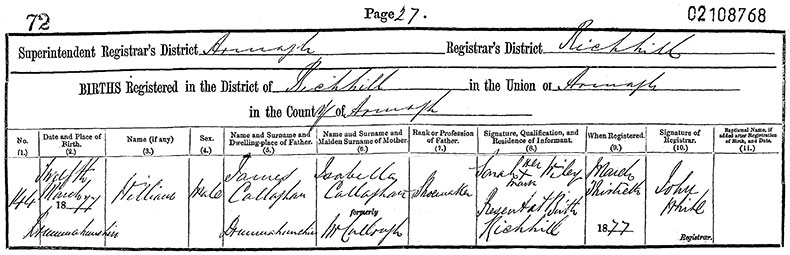 72
Page 27.
02108768
Superintendent Registrar's District Armagh Registrar's District Richhill
BIRTHS Registered in the District of Richhill in the Union of Armagh
in the County of Armagh
No. (1.) Date and Place of Birth. (2.) Name (if any) (3.) Sex. (4.) Name and Surname and Dwelling-place of Father. (5.) Name and Surname and Maiden Surname of Mother. (6.) Rank or Profession of Father. (7.) Signature, Qualification, and Residence of Informant. (8.) When Registered. (9.) Signature of Registrar. (10.) Baptismal Name, if added after Registration of Birth, and Date. (11.)
Twelfth James Isabella Sarah her Wiley March
144 March William Male Callaghan Callaghan Shoemaker x mark Thirtieth John
1877 formerly Present at Birth White
McCullough Richhill 1877 Registrar.